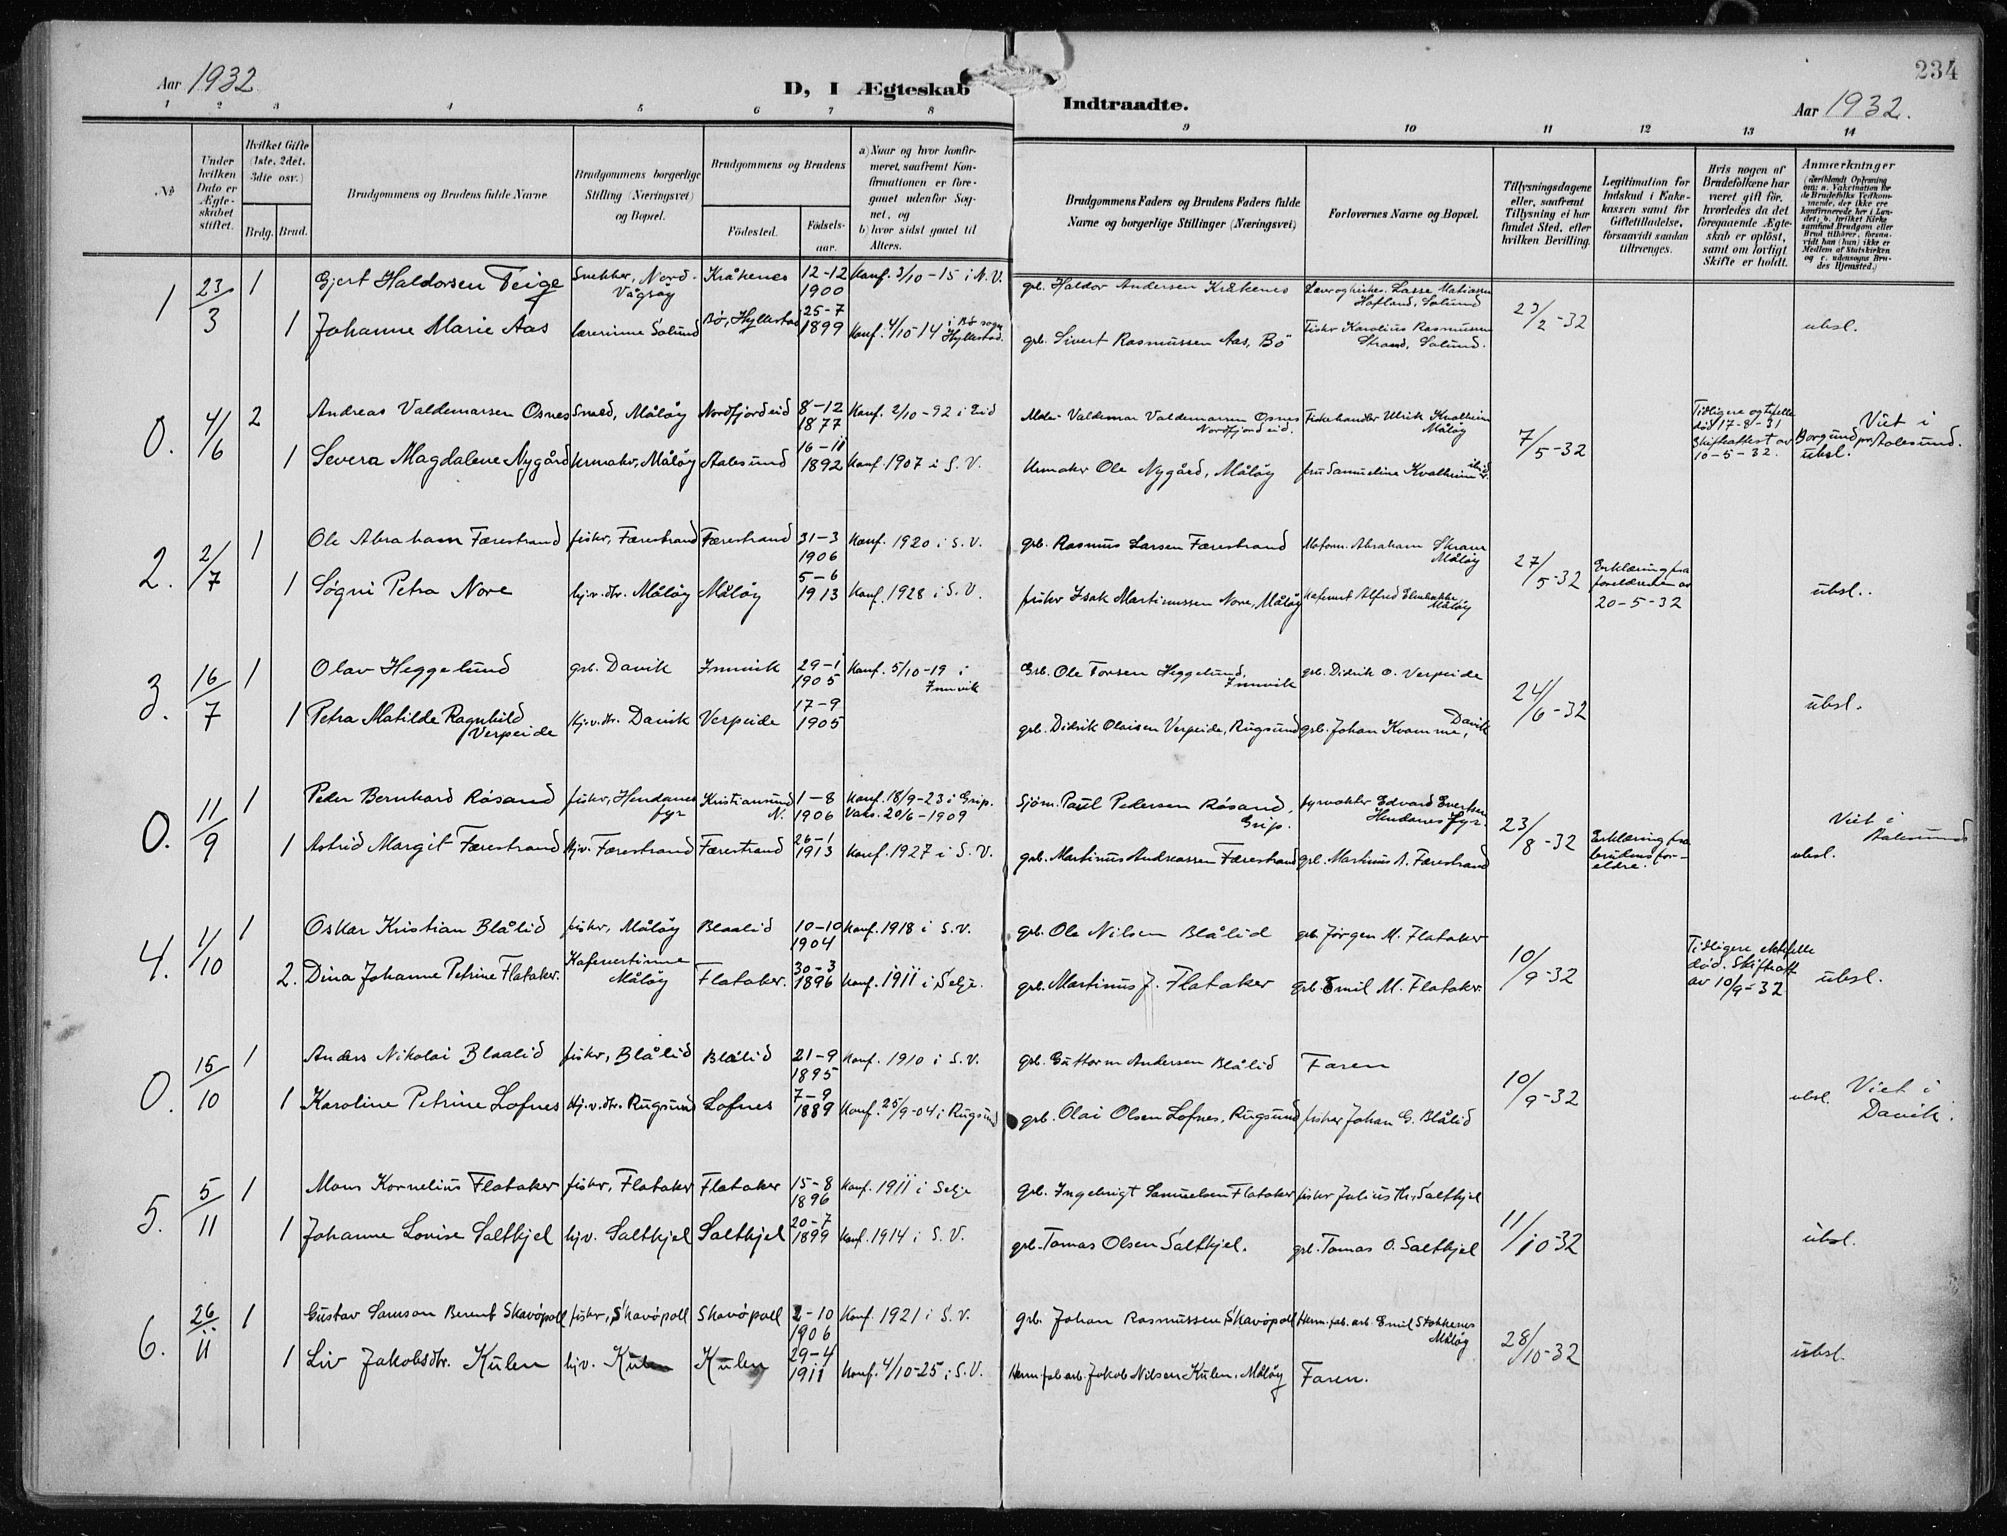 234
Aar 1932
D, I Ægteskab Indtraadte.
Aar 1932.
1 2 3 4 5 6 7 8 9 10 11 12 13 14
№
Under hvilken Dato er Ægteskabet stiftet.
Hvilket Gifte (1ste, 2det, 3die osv.)
Brdg. Brud.
Brudgommens og Brudens fulde Navne
Brudgommens borgerlige Stilling (Næringsvei) og Bopæl.
Brudgommens og Brudens
Fødested.
Fødsels-aar.
a) Naar og hvor konfirmeret, saafremt Konfirmationen er foregaaet udenfor Sognet, og
b) hvor sidst gaaet til Alters.
Brudgommens Faders og Brudens Faders fulde Navne og borgerlige Stillinger (Næringsvei)
Forlovernes Navne og Bopæl.
Tillysningsdagene eller, saafremt Tillysning ei har fundet Sted, efter hvilken Bevilling.
Legitimation for Indskud i Enkekassen samt for Giftetilladelse, forsaavidt saadan tiltrænges.
Hvis nogen af Brudefolkene har været gift før, hvorledes da det foregaaende Ægteskab er opløst, samt om lovligt Skifte er holdt.
Anmærkninger
1 23/3 1 Gjert Haldorsen Teige Snekker, Nord-Vågsøy Kråkenes 12-12 1900 Konf. 3/10-15 i N.V. gb. Haldor Andersen Kråkenes Lasse Matiassen Hofland, Solund 23/2-32
1 Johanne Marie Aas lærerinne Solund Bø, Hyllestad 25-7 1899 Konf. 4/10-14 i Bø sogn Hyllestad. grb. Sivert Rasmussen Aas, Bø Fisker Karolius Rasmussen Strand, Solund. ubsl.
0. 4/6 2 Andreas Valdemarsen Osnes Smed, Måløy Nordfjordeid 8-12 1877 Konf. 2/10-92 i Eid Valdemar Valdemarsen Osnes Nordfjordeid. Fiskehandler Ulrik Kvalheim Måløy 7/5-32 Tidligere død 17-8-31 Skifteattest av 10-5-32. Borgund pr Aalesund. ubsl. Viet i
1 Severa Magdalene Nygård Urmaker, Måløy Aalesund 16-11 1892 Konf. 1907 i S.V. Urmaker Ole Nygård, Måløy fru Samueline Kvalheim
2. 2/7 1 Ole Abraham Færestrand fisker, Færestrand Færestrand 31-3 1906 Konf. 1920 i S.V. grb. Rasmus Larsen Færestrand Abraham Skram Måløy 27/5-32 Erklæring fra foreldrene av 20-5-32
1 Søgni Petra Nore hj.v.dtr. Måløy Måløy 5-6 1913 Konf. 1928 i S.V. fisker Isak Martinussen Nore, Måløy Alfred Måløy ubsl.
3. 16/7 1 Olav Heggelund grb. Davik Innvik 29-1 1905 Konf. 5/10-19 i Innvik Grb. Ole Torsen Heggelund, Innvik grb. Didrik O. Verpeide 24/6-32
1 Petra Matilde Ragnhild Verpeide hj.v.dtr. Davik Verpeide 17-9 1905 grb. Didrik Olaisen Verpeide, Rugsund grb. Johan Kvamme, Davik ubsl.
0. 11/9 1 Peder Bernhard Røsand fisker, Hendanes fyr Kristiansund N. 1-8 1906 Konf. 18/9-23 i Grip. Vaks. 20/6-1909 Sjøm. Paul Pedersen Røsand, Grip. fyrvokter Edvard Evertsen Hendanes fyr. 23/8-32 Erklæring fra brudens foreldre. Viet i Aalesund
1 Astrid Margit Færestrand hjv. Færestrand Færestrand 26-1 1913 Konf. 1927 i S.V. grb. Martinus Andreassen Færestrand grb. Martinus A. Færestrand ubsl.
4. 1/10 1 Oskar Kristian Blålid fisker, Måløy Blaalid 10-10 1904 Konf. 1918 i S.V. grb. Ole Nilsen Blålid grb. Jørgen M. Flataker 10/9-32 Tidligere ektefelle død. Skifteatt av 10/9-32
2. Dina Johanne Petrine Flataker. Kafevertinne Måløy Flataker. 30-3 1896 Konf. 1911 i Selje. grb. Martinus J. Flataker grb. Emil M. Flataker. ubsl.
0. 15/10 1 Anders Nikolai Blaalid fisker, Blålid Blålid 21-9 1895 Konf. 1910 i S.V. grb. Guttorm Andersen Blålid Faren 10/9-32 Viet i Davik.
1 Karoline Petrine Lofnes hj.v.dtr. Rugsund Lofnes 7-9 1889 Konf. 25/9-04 i Rugsund grb. Olai Olsen Lofnes, Rugsund fisker Johan G. Blålid ubsl.
5. 5/11 1 Mons Kornelius Flataker fisker, Flataker Flataker 15-8 1896 Konf. 1911 i Selje grb. Ingebrigt Samuelsen Flataker fisker Julius Th. Saltkjel 11/10-32
1 Johanne Lovise Saltkjel hjv. Saltkjel Saltkjel 20-7 1899 Konf. 1914 i S.V. grb. Tomas Olsen Saltkjel. grb. Tomas O. Saltkjel ubsl.
6. 26/11 1 Gustav Samson Berent Skavøpoll fisker, Skavøpoll Skavøpoll 2-10 1906 Konf. 1921 i S.V. grb. Johan Rasmussen Skavøpoll Herm.fab.arb. Emil Stokkenes Måløy 28/10-32
1 Liv Jakobsdtr. Kulen hjv. Kulen Kulen 29-4 1911 Konf. 4/10-25 i S.V. Herm.fab.arb. Jakob Nilsen Kulen, Måløy Faren. ubsl.